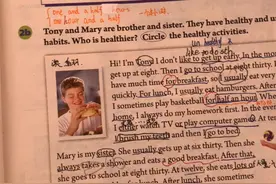 one and a half hours
one hour and a half
unhealthy
like to do sth
2b Tony and Mary are brother and sister. They have healthy and un
habits. Who is healthier? Circle the healthy activities.
Hi! I'm Tony. I don't like to get up early. In the m
get up at eight. Then I go to school at eight thirty. I
have much time for breakfast, so I usually eat very
quickly. For lunch, I usually eat hamburgers. After
I sometimes play basketball for half an hour. When
home, I always do my homework first. In the eveni
either watch TV or play computer game
I brush my teeth and then I go to bed
Mary is my sister. She usually gets up at six thirty. Then she
always takes a shower and eats a good breakfast. After that
she goes to school at eight thirty. At twelve, she eats lots
For lunch. After lunch, she sometimes